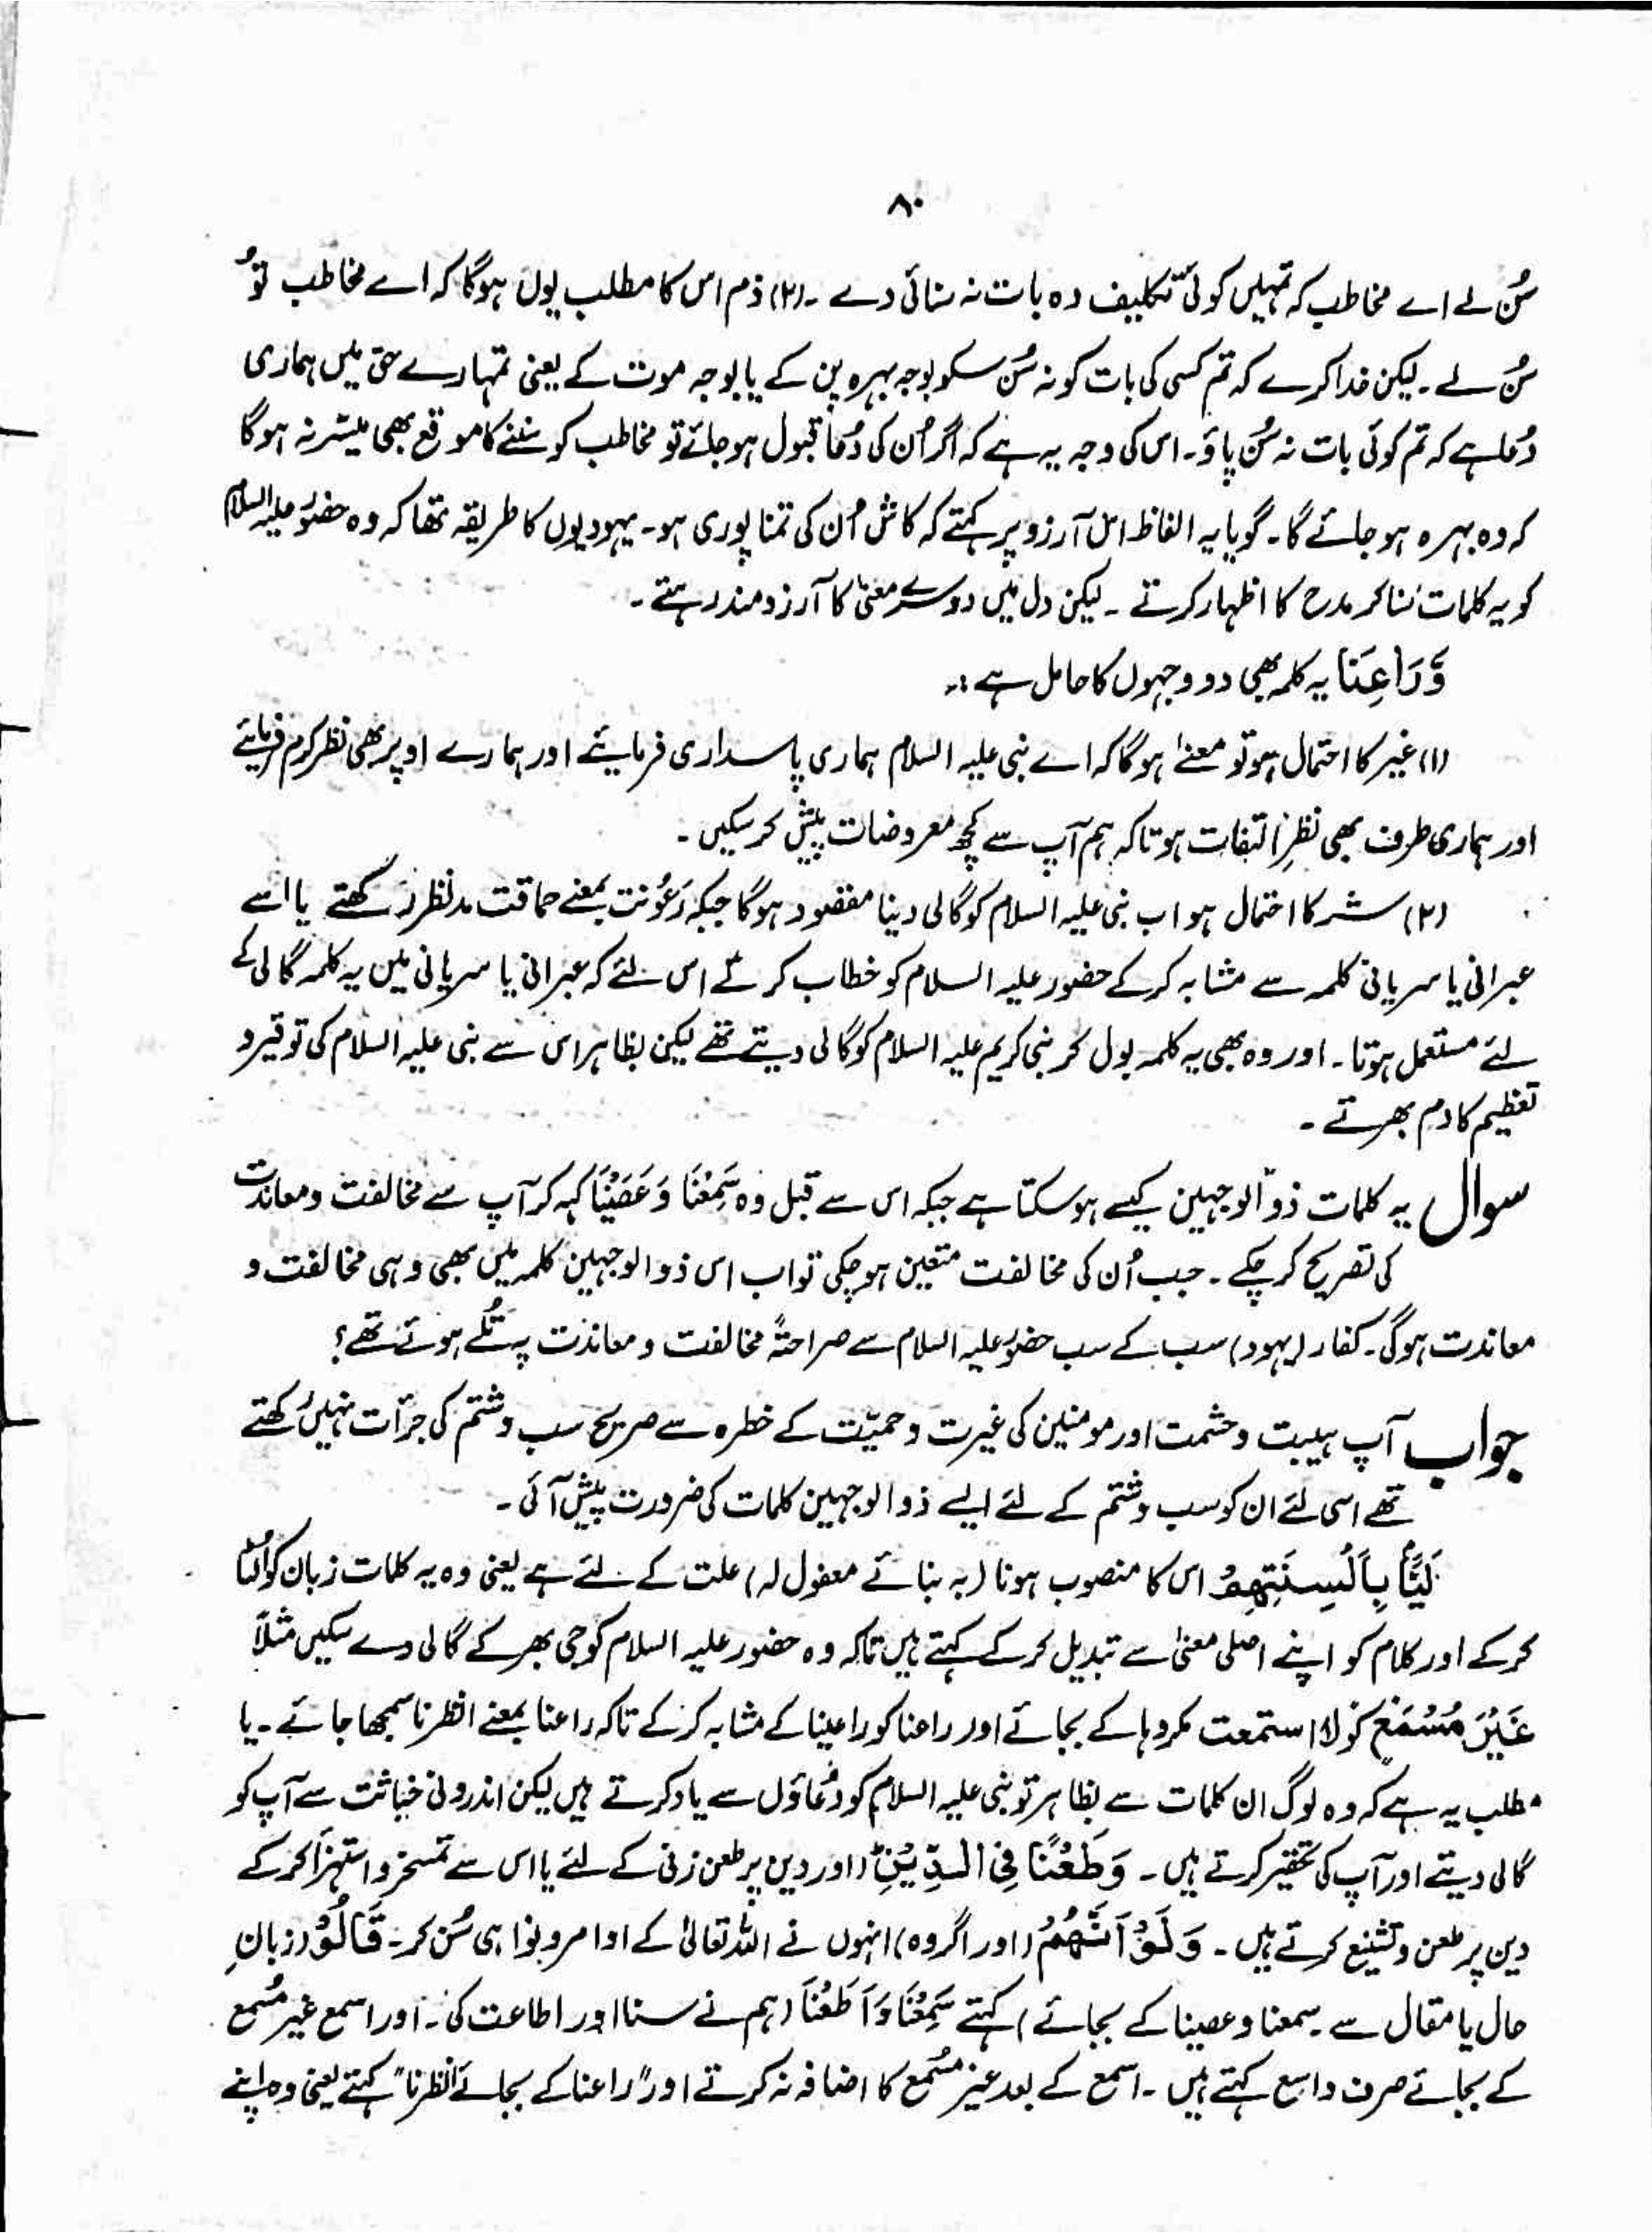 ۸۰
سُن لے اے مخاطب کہ تمہیں کوئی تکلیف دہ بات نہ سنائی دے ۔ (۲) ذم اس کا مطلب یوں ہوگا کہ اے مخاطب تُو
سُن لے ۔ لیکن خدا کرے کہ تم کسی کی بات کو نہ سُن سکو بوجہ بہرہ پن کے یا بوجہ موت کے یعنی تمہارے حق میں ہماری
دُعا ہے کہ تم کوئی بات نہ سُن پاؤ ۔ اس کی وجہ یہ ہے کہ اگر اُن کی دُعا قبول ہو جائے تو مخاطب کو سننے کا موقع بھی میسّر نہ ہوگا
کہ وہ بہرہ ہو جائے گا ۔ گویا یہ الفاظ اس آرزو پر کہتے کہ کاش اُن کی تمنا پوری ہو ۔ یہودیوں کا طریقہ تھا کہ وہ حضور علیہ السلام
کو یہ کلمات سُنا کر مدح کا اظہار کرتے ۔ لیکن دل میں دوسرے معنیٰ کا آرزو مند رہتے ۔
وَّرَاعِنَا یہ کلمہ بھی دو وجہوں کا حامل ہے :۔
(۱) غیر کا احتمال ہو تو معنےٰ ہوگا کہ اے نبی علیہ السلام ہماری پاسداری فرمایئے اور ہمارے اوپر بھی نظر کرم فرمایئے
اور ہماری طرف بھی نظرِ التفات ہو تاکہ ہم آپ سے کچھ معروضات پیش کر سکیں ۔
(۲) شر کا احتمال ہو اب نبی علیہ السلام کو گالی دینا مقصود ہوگا جبکہ رَعُونت بمعنے حماقت مدنظر رکھتے یا اسے
عبرانی یا سریانی کلمہ سے مشابہ کر کے حضور علیہ السلام کو خطاب کرتے اس لئے کہ عبرانی یا سریانی میں یہ کلمہ گالی کے
لئے مستعمل ہوتا ۔ اور وہ بھی یہ کلمہ بول کر نبی کریم علیہ السلام کو گالی دیتے تھے لیکن بظاہر اس سے نبی علیہ السلام کی توقیر و
تعظیم کا دم بھرتے ۔
سوال یہ کلمات ذو الوجہین کیسے ہو سکتا ہے جبکہ اس سے قبل وہ سَمِعْنَا وَعَصَیْنَا کہہ کر آپ سے مخالفت و معاندت
کی تصریح کر چکے ۔ جب اُن کی مخالفت متعین ہو چکی تو اب اس ذو الوجہین کلمہ میں بھی وہی مخالفت و
معاندت ہوگی ۔ کفار (یہود) سب کے سب حضور علیہ السلام سے صراحتہً مخالفت و معاندت پہ تُلے ہوئے تھے ؟
جواب آپ ہیبت و حشمت اور مومنین کی غیرت و حمیّت کے خطرہ سے صریح سب و شتم کی جرأت نہیں رکھتے
تھے اسی لئے ان کو سب و شتم کے لئے ایسے ذو الوجہین کلمات کی ضرورت پیش آئی ۔
لَیًّا بِاَلْسِنَتِهِمْ اس کا منصوب ہونا (بہ بنائے مفعول لہ) علت کے لئے ہے یعنی وہ یہ کلمات زبان کو اُلٹا
کر کے اور کلام کو اپنے اصلی معنیٰ سے تبدیل کر کے کہتے ہیں تاکہ وہ حضور علیہ السلام کو جی بھر کے گالی دے سکیں مثلاً
غَیْرَ مُسْمَعٍ کو لا استمعت مکروہا کے بجائے اور راعنا کو راعینا کے مشابہ کر کے تاکہ راعنا بمعنے انظرنا سمجھا جائے ۔ یا
مطلب یہ ہے کہ وہ لوگ ان کلمات سے بظاہر تو نبی علیہ السلام کو دُعاؤں سے یاد کرتے ہیں لیکن اندرونی خباثت سے آپ کو
گالی دیتے اور آپ کی تحقیر کرتے ہیں ۔ وَطَعْنًا فِی الدِّیْنِ ؕ (اور دین پر طعن زنی کے لئے یا اس سے تمسخر و استہزأ کر کے
دین پر طعن و تشنیع کرتے ہیں ۔ وَلَوْ اَنَّهُمْ (اور اگر وہ) انہوں نے اللہ تعالیٰ کے اوامر و نواہی سُن کر ۔ قَالُوْا (زبانِ
حال یا مقال سے سمعنا و عصینا کے بجائے) کہتے سَمِعْنَا وَاَطَعْنَا (ہم نے سنا اور اطاعت کی ۔ اور اسمع غیر مُسمع
کے بجائے صرف واسمع کہتے ہیں ۔ اسمع کے بعد غیر مُسمع کا اضافہ نہ کرتے اور "راعنا کے بجائے انظرنا" کہتے یعنی وہ اپنے